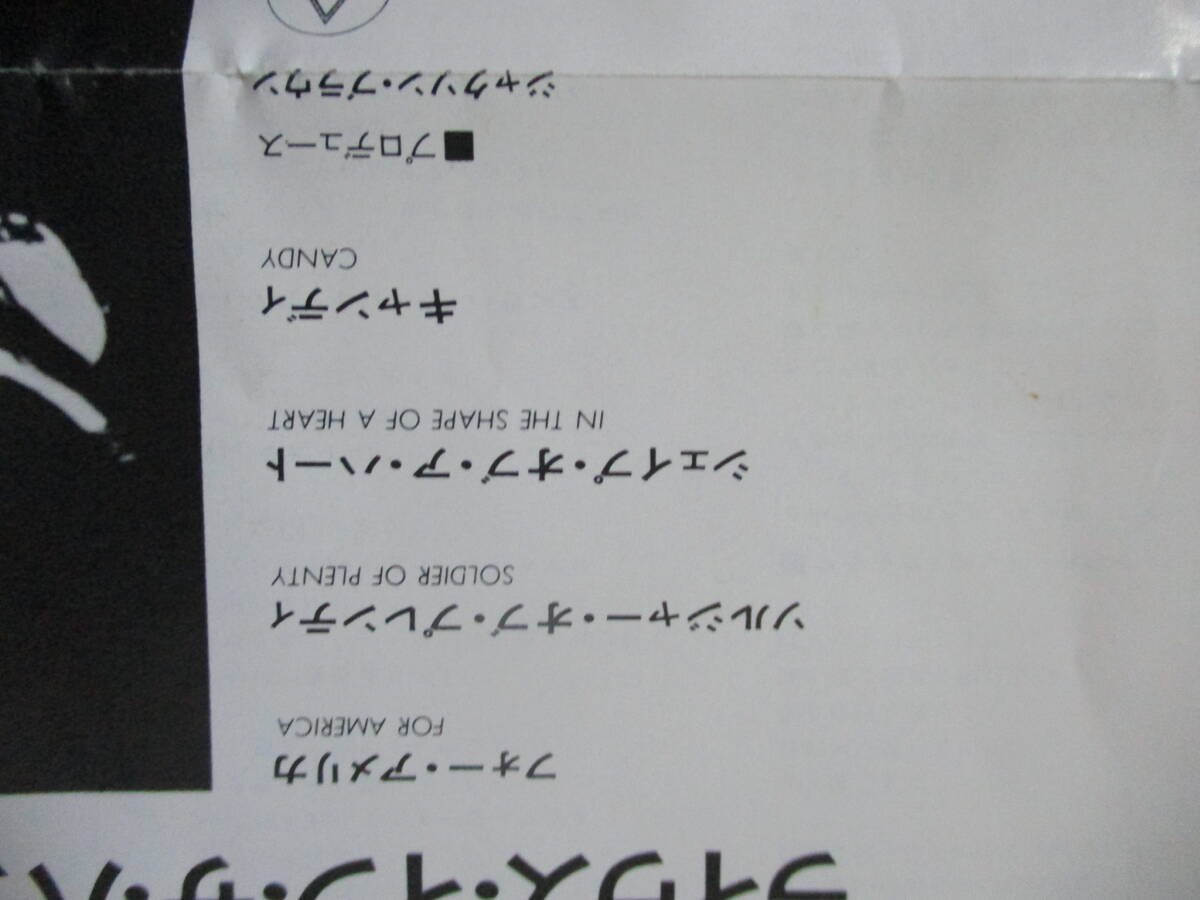 ライヴス・イン・ザ・
フォー・アメリカ
FOR AMERICA
ソルジャー・オブ・プレンティ
SOLDIER OF PLENTY
シェイプ・オブ・ア・ハート
IN THE SHAPE OF A HEART
キャンディ
CANDY
■プロデュース
ジャクソン・ブラウン